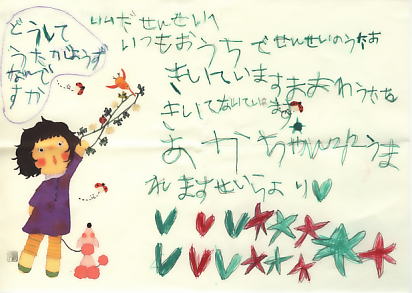 どうして
うたがじょうず
なんで
すか
いいだせんせいへ
いつもおうちでせんせいのうたお
きいていますまおわうたを
きいてないていいます
あかちゃんがうま
れますせいらより